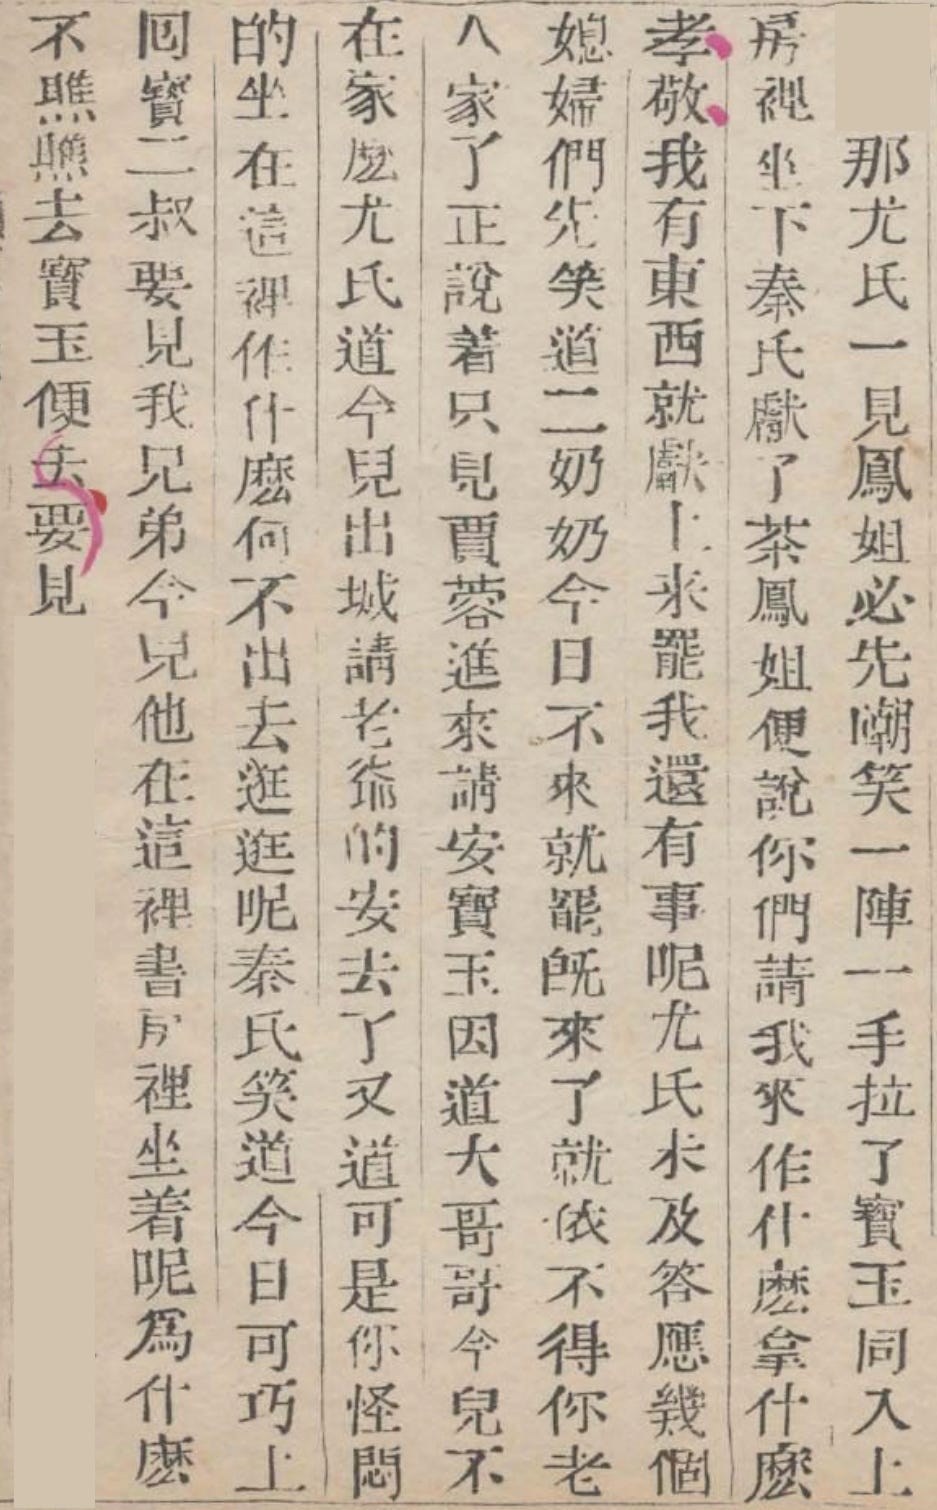 那尤氏一見鳳姐必先嘲笑一陣一手拉了寶玉同入上
房裡坐下秦氏獻了茶鳳姐便說你們請我來作什麽拿什麽
孝敬我有東西就獻上來罷我還有事呢尤氏未及答應幾個
媳婦們先笑道二奶奶今日不來就罷旣來了就依不得你老
人家了正說着只見賈蓉進來請安寶玉因道大哥哥今兒不
在家麽尤氏道今兒出城請老爺的安去了又道可是你怪悶
的坐在這裡作什麽何不出去逛逛呢秦氏笑道今日可巧上
囘寶二叔要見我兄弟今兒他在這裡書房裡坐着呢爲什麽
不瞧瞧去寶玉便去要見